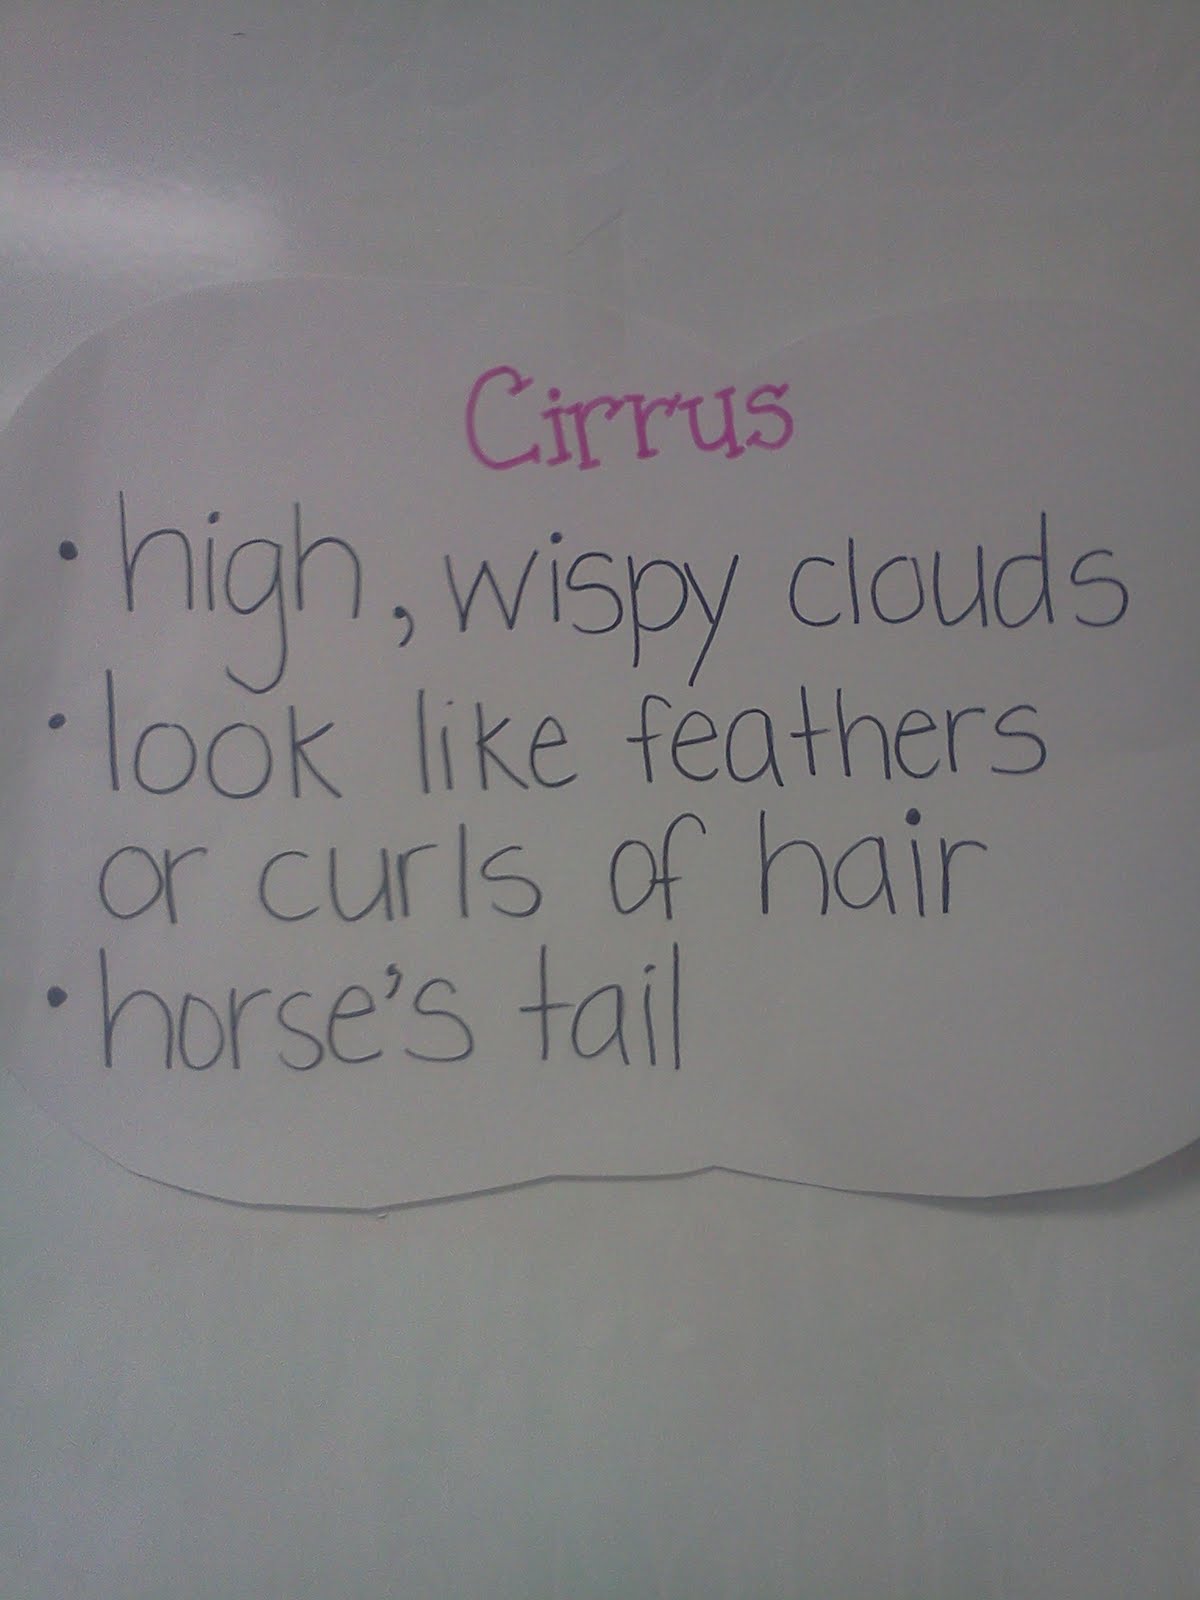 Cirrus
• high, wispy clouds
• look like feathers
or curls of hair
• horse's tail